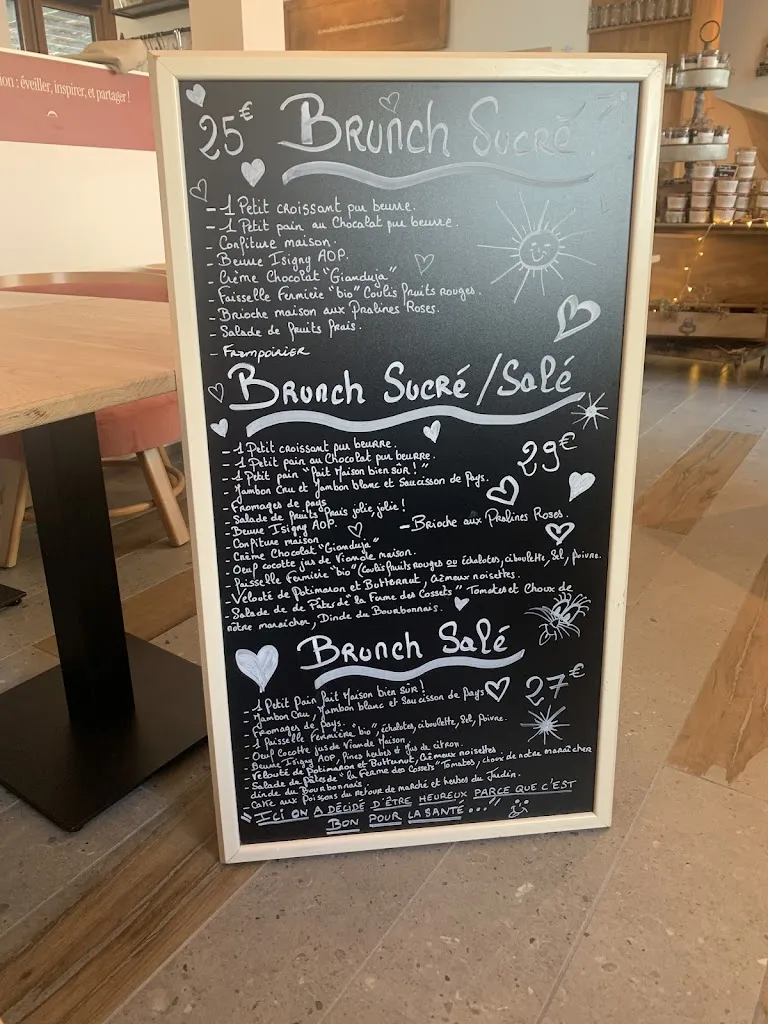 ion : éveiller, inspirer, et partager !
25€ Brunch Sucré
- 1 Petit croissant pur beurre.
- 1 Petit pain au Chocolat pur beurre.
- Confiture maison.
- Beurre Isigny AOP.
- Crème Chocolat "Gianduja"
- Faisselle Fermière "bio" Coulis fruits rouges.
- Brioche maison aux Pralines Roses.
- Salade de fruits frais.
- Framboisier
Brunch Sucré / Salé
29€
- 1 Petit croissant pur beurre.
- 1 Petit pain au Chocolat pur beurre.
- 1 Petit pain "fait Maison bien sûr ! "
- Jambon Cru et Jambon blanc et Saucisson de Pays.
- Fromages de pays
- Salade de fruits frais jolie, jolie !
- Beurre Isigny AOP.
- Brioche aux Pralines Roses.
- Confiture maison
- Crème Chocolat "Gianduja"
- Oeuf cocotte jus de Viande maison.
- Faisselle Fermière "bio" (Coulis fruits rouges ou échalotes, ciboulette, Sel, Poivre.
- Velouté de Potimaron et Butternut, Crémeux noisettes.
- Salade de de Pâtes de "la Ferme des Cossets" Tomates et Choux de
nôtre maraîcher, Dinde du Bourbonnais.
Brunch Salé
27€
- 1 Petit Pain fait Maison bien sûr !
- Jambon Cru, Jambon blanc et Saucisson de Pays
- Fromages de Pays.
- 1 Faisselle Fermière "bio", échalotes, ciboulette, Sel, Poivre.
- Oeuf Cocotte jus de Viande Maison.
- Beurre Isigny AOP, Fines herbes et Jus de citron.
- Velouté de Potimaron et Butternut, Crémeux noisettes.
- Salade de Pâtes de "la Ferme des Cossets" Tomates, choux de notre maraîcher
dinde du Bourbonnais.
- Cake aux Poissons du Retour de marché et herbes du Jardin.
"Ici on a décidé d'être heureux parce que c'est
bon pour la santé..."